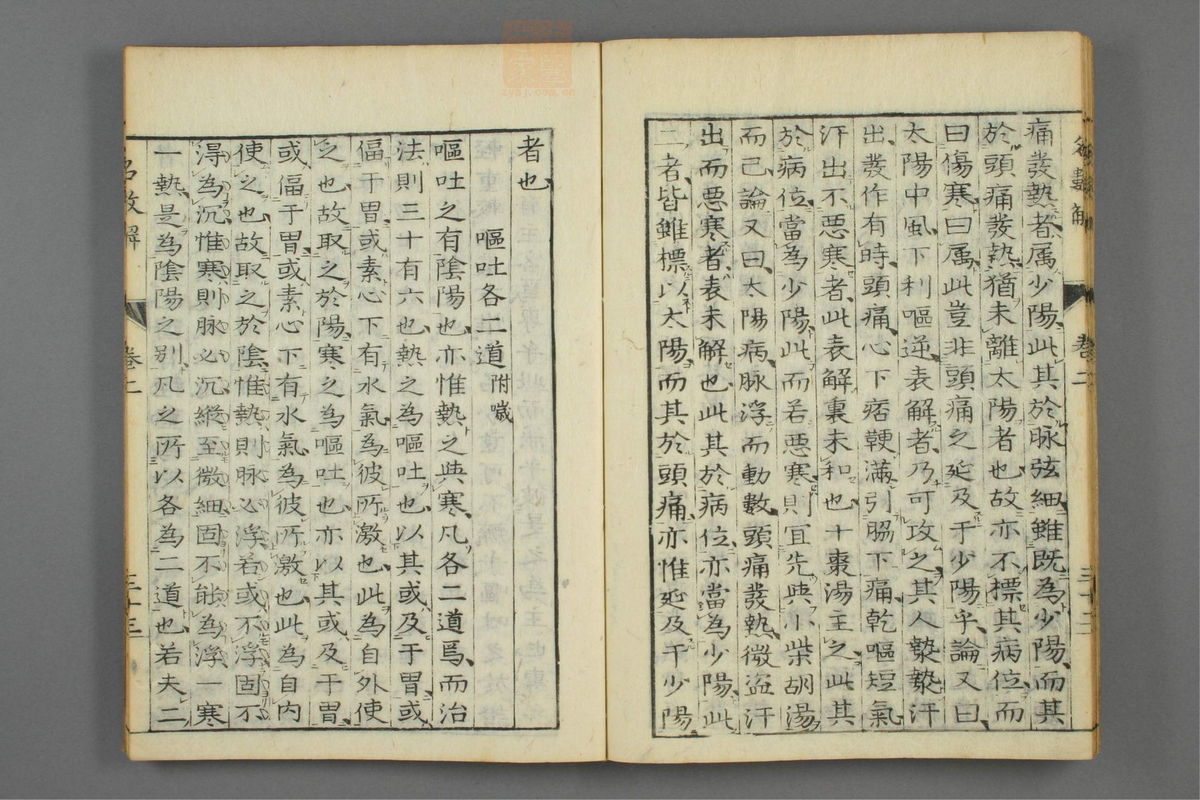 痛發熱者属少陽此其於脉弦細雖既為少陽而其
於頭痛發熱猶未離太陽者也故亦不標其病位而
曰傷寒曰属此豈非頭痛之延及于少陽乎論又曰
太陽中風下利嘔逆表解者乃可攻之其人漐漐汗
出發作有時頭痛心下痞鞕滿引脇下痛乾嘔短氣
汗出不惡寒者此表解裏未和也十棗湯主之此其
於病位當為少陽此而若惡寒則宜先與小柴胡湯
而已論又曰太陽病脉浮而動數頭痛發熱微盗汗
出而惡寒者表未解也此其於病位亦當為少陽此
二者皆雖標以太陽而其於頭痛亦惟延及于少陽
卷二
三十二
者也
嘔吐各二道附噦
嘔吐之有陰陽也亦惟熱之與寒凡各二道焉而治
法則三十有六也熱之為嘔吐也以其或及于胃或
偪于胃或素心下有水氣為彼所激也此為自外使
之也故取之於陽寒之為嘔吐也亦以其或及于胃
或偪于胃或素心下有水氣為彼所激也此為自内
使之也故取之於陰惟熱則脉必浮若或不浮固不
得為沉惟寒則脉必沉縱至微細固不能為浮一寒
一熱是為陰陽之别凡之所以各為二道也若夫二
名數解
卷二
三十三